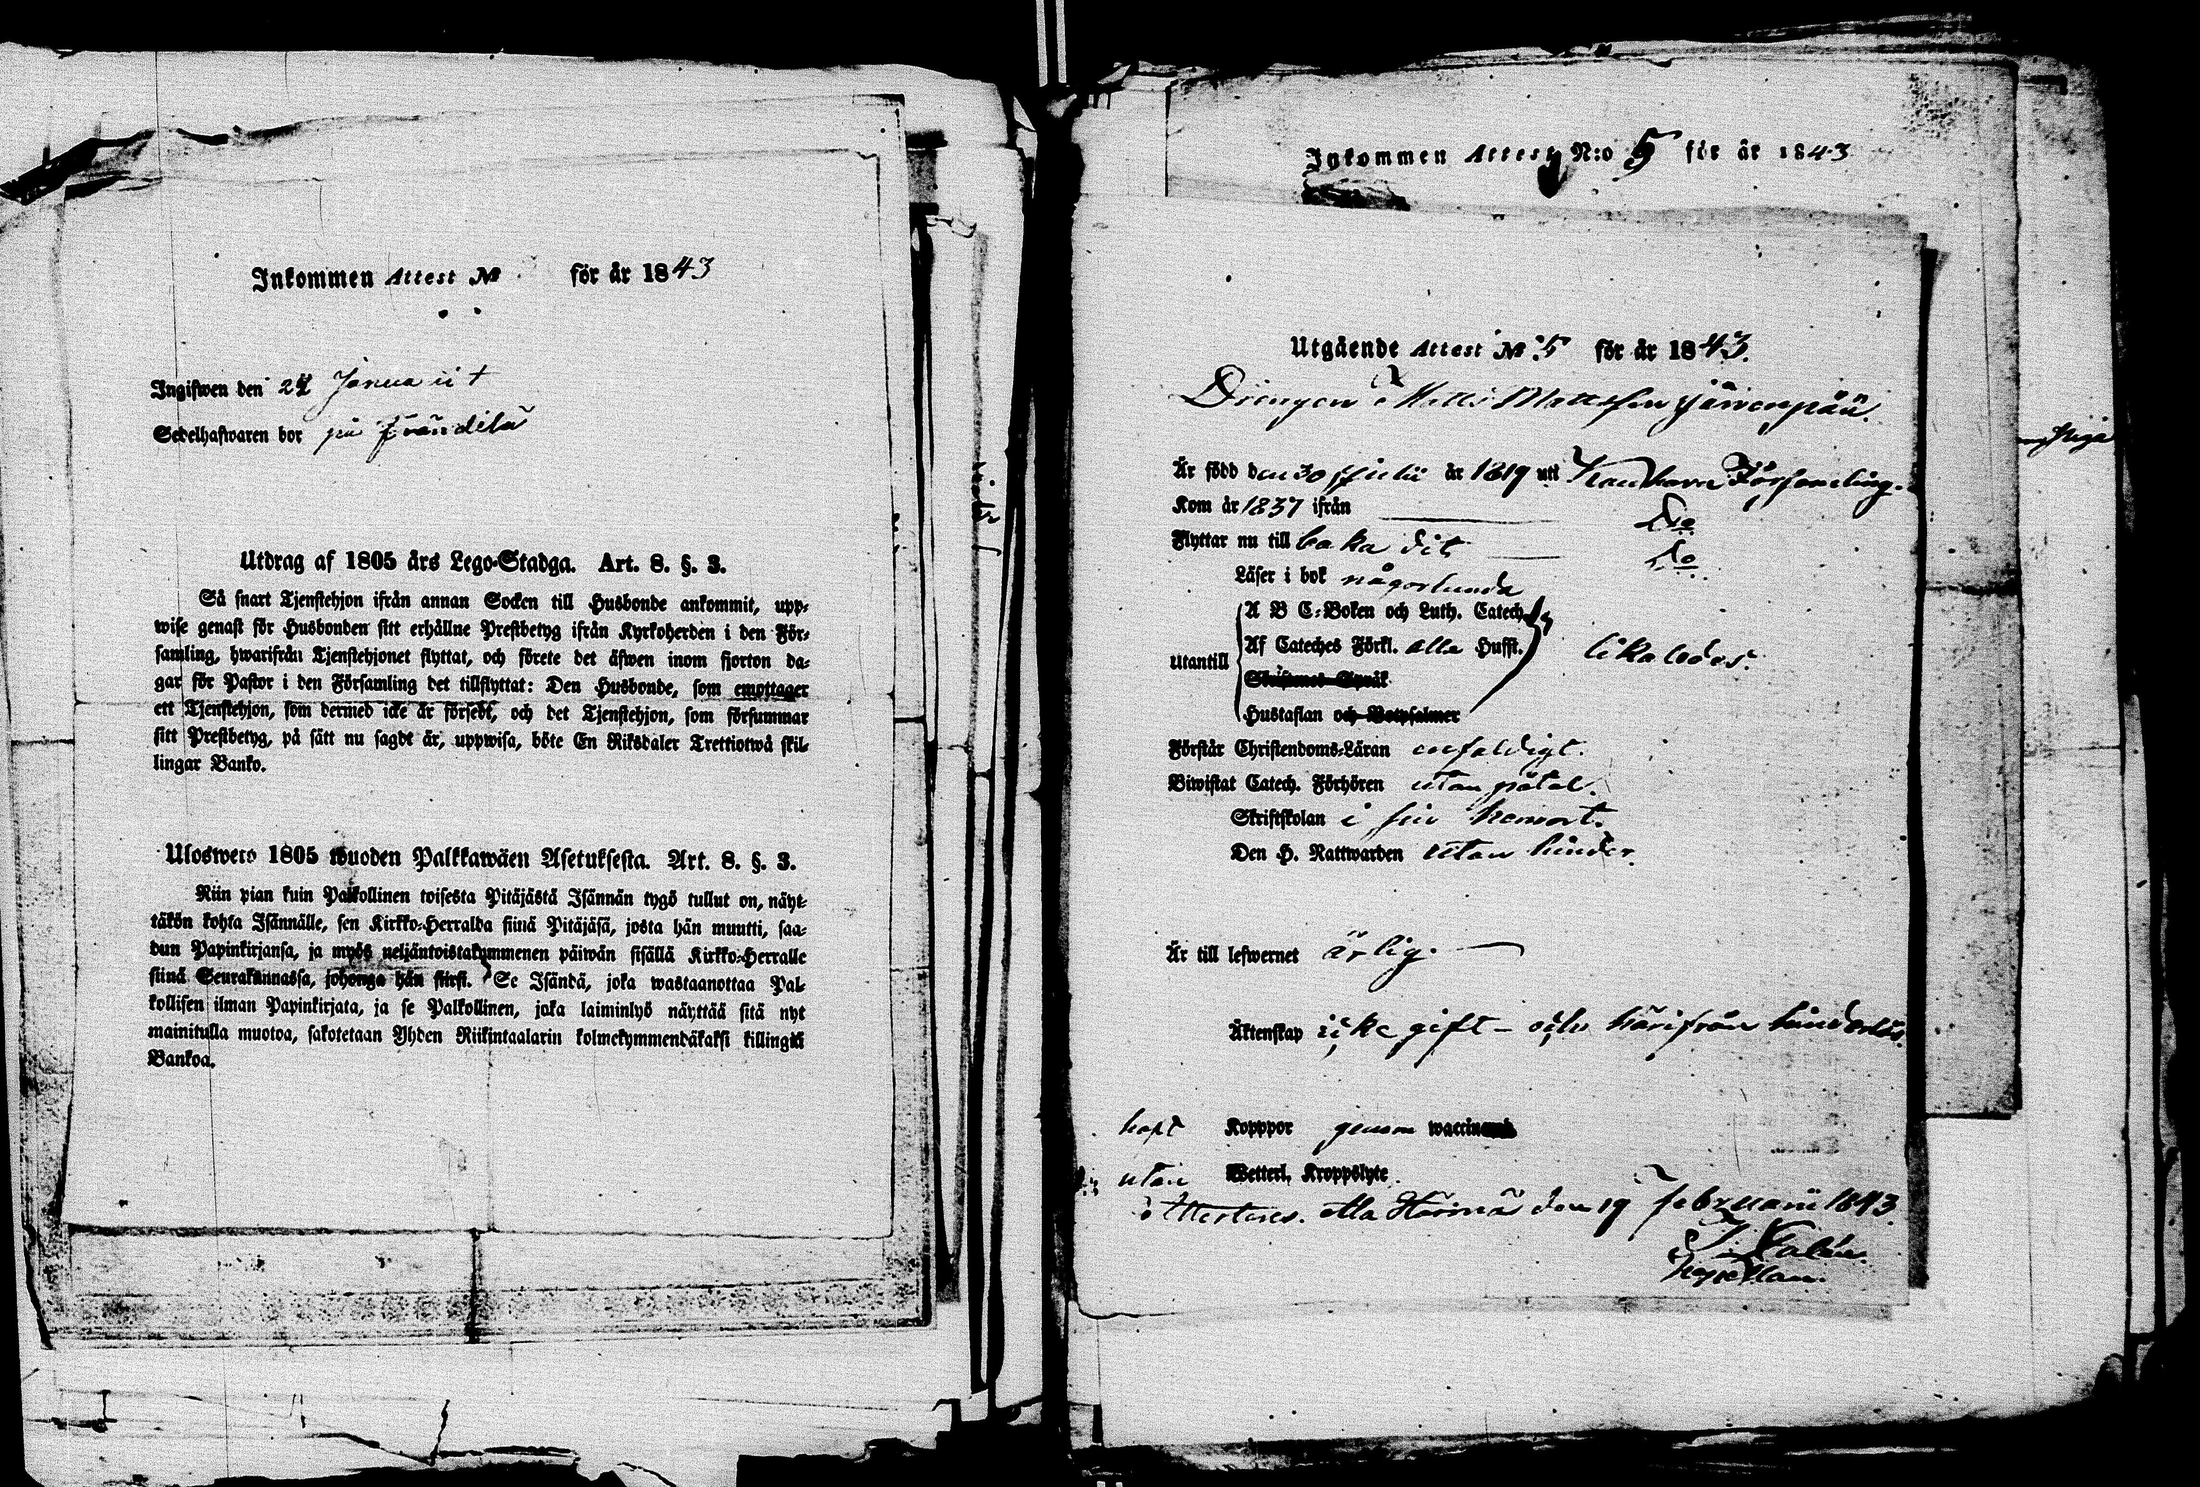 Inkommen Attest № för år 1843
Ingifwen den 24 Januarii
Sedelhafwaren bor på
Utdrag af 1805 års Lego-Stadga. Art. 8. §. 3.
Så snart Tjenstehjon ifrån annan Socken till Husbonde ankommit, upp-
wise genast för Husbonden sitt erhållne Prestbetyg ifrån Kyrkoherden i den För-
samling, hwarifrån Tjenstehjonet flyttat, och förete det äfwen inom fjorton da-
gar för Pastor i den Församling det tillflyttat: Den Husbonde, som emottager
ett Tjenstehjon, som dermed icke är försedt, och det Tjenstehjon, som försummar
sitt Prestbetyg, på sätt nu sagdt är, uppwisa, böte En Riksdaler Trettiotwå skil-
lingar Banko.
Ulosweto 1805 wuoden Palkkawäen Asetuksesta. Art. 8. §. 3.
Niin pian kuin Palkollinen toisesta Pitäjästä Isännän tygö tullut on, näyt-
täkön kohta Isännälle, sen Kirkko-Herralda siinä Pitäjäsä, josta hän muutti, saa-
dun Papinkirjansa, ja myös neljäntoistakymmenen päiwän sisällä Kirkko-Herralle
siinä Seurakunnassa, johonga hän siirsi. Se Isändä, joka wastaanottaa Pal-
kollisen ilman Papinkirjata, ja se Palkollinen, joka laiminlyö näyttää sitä nyt
mainitulla muotoa, sakotetaan Yhden Riikintaalarin kolmekymmendäkaksi killingiä
Bankoa.
Inkommen Attest N:o 5 för år 1843
Utgående Attest № 5 för år 1843.
Drengen Matts Mattsson Järvenpää
Är född den 30 Julii år 1819 uti Kauhava Församling.
Kom år 1837 ifrån Do
Flyttar nu till baka dit Do
Läser i bok någorlunda
Utantill
A B C-Boken och Luth. Catech.
Af Cateches Förkl. alla Hufst.
likaledes.
Skriftenes Språk
Hustaflan och Botpsalmer
Förstår Christendoms-Läran enfaldigt.
Biwistat Catech. Förhören utan påtal.
Skriftskolan i sin hemort.
Den H. Nattwarden utan hinder.
Är till lefwernet ärlig.
Äktenskap icke gift - och härifrån hinderlös.
haft Kopppor genom waccin
utan Wetterl. Kroppslyte
Attesteras. Ala Härmä den 19 Februarii 1843.
Kapellan.